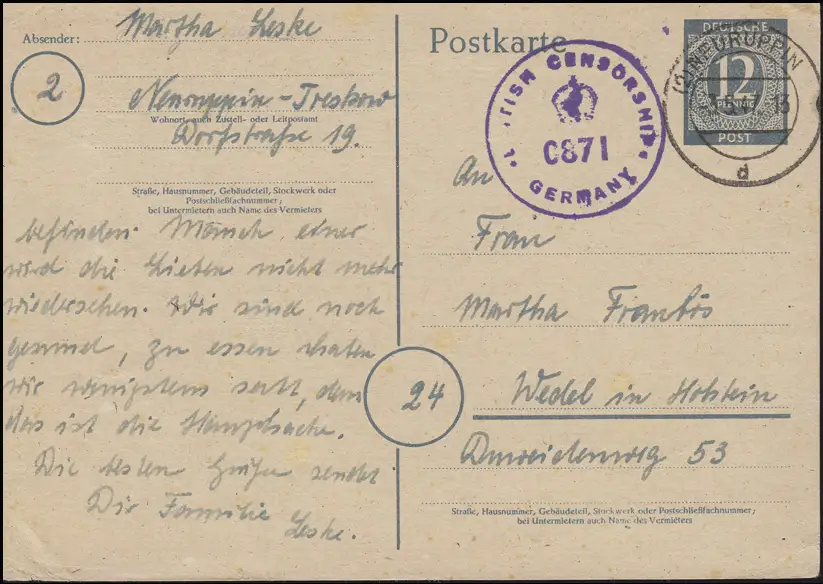 Absender: Martha Leske
2
Neuruppin-Treskow
Wohnort, auch Zustell- oder Leitpostamt
Dorfstraße 19.
Straße, Hausnummer, Gebäudeteil, Stockwerk oder
Postschließfachnummer;
bei Untermietern auch Name des Vermieters
befinden. Mancher einer
wird die Lieben nicht mehr
wiedersehen. Wir sind noch
gesund, zu essen haben
wir wenigstens satt, denn
das ist die Hauptsache.
Die besten Grüße sendet
Dir Familie
Leske.
Postkarte
TISH CENSORSHIP
0871
GERMANY
DEUTSCHE
12
PFENNIG
POST
NEURUPPIN
d
An
Frau
Martha
24
Wedel in Holstein
53
Straße, Hausnummer, Gebäudeteil, Stockwerk oder Postschließfachnummer;
bei Untermietern auch Name des Vermieters